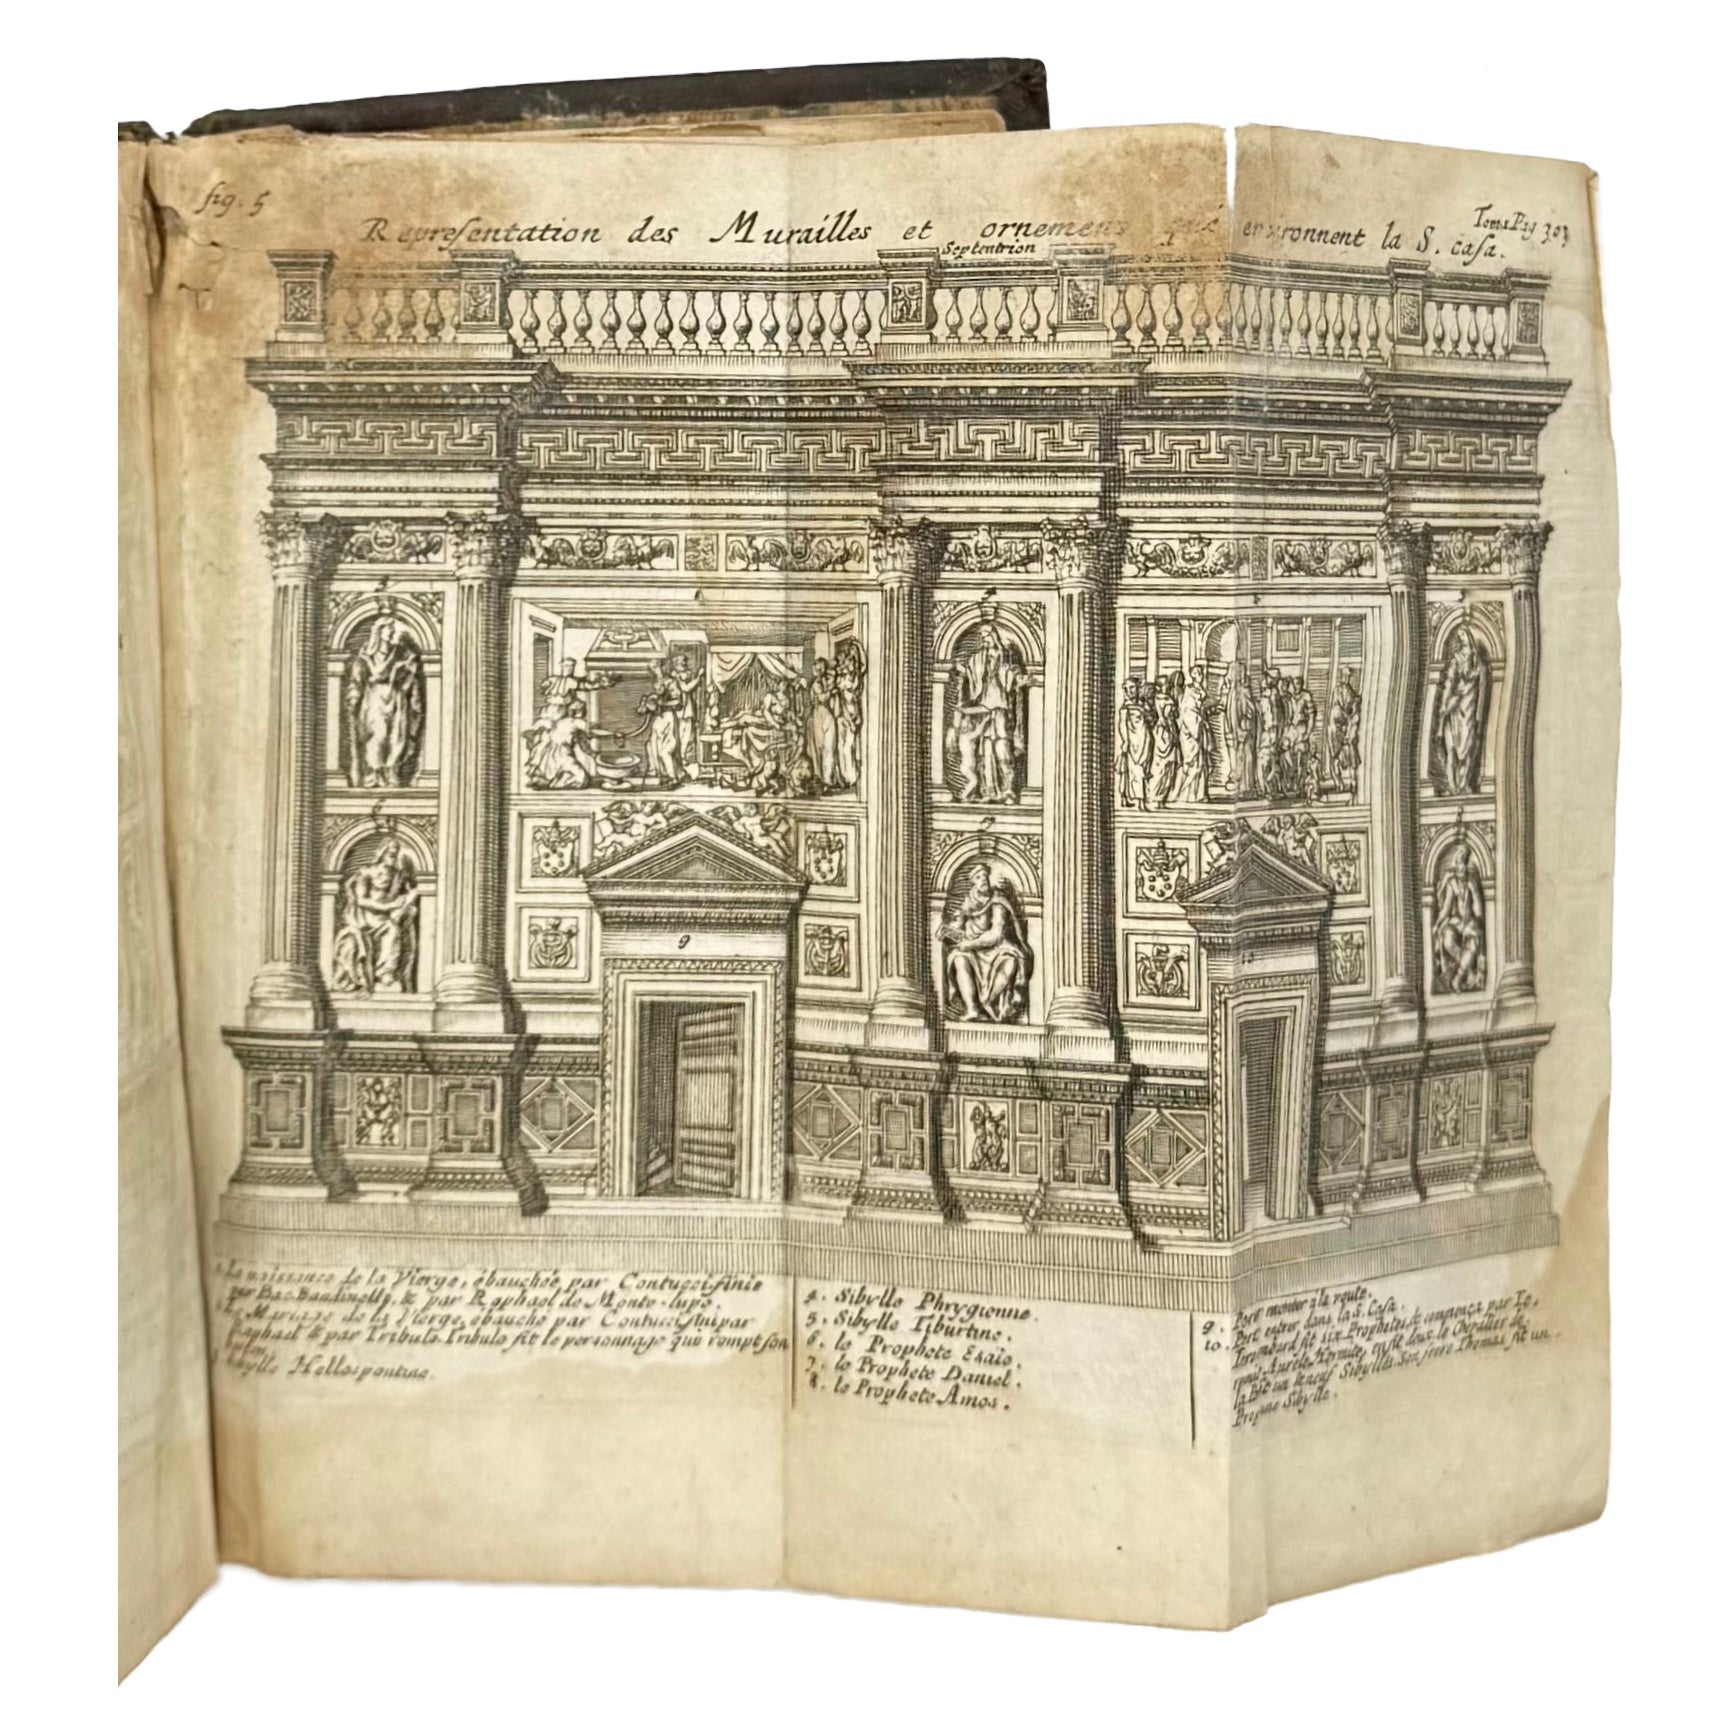 fig. 5
Tom 1 Pag 303
Representation des Murailles et ornemens qui environnent la S. Casa.
Septentrion
9
10
6
La naissance de la Vierge, ébauchée par Contucci, finie
par Bac. Bandinelly, & par Raphael de Monte-lupo.
Le Mariage de la Vierge, ebauche par Contucci, fini par
Raphael & par Tribulo. Tribulo fit le personnage que rompt son
Sibylle Hellespontine.
4. Sibylle Phrygienne.
5. Sibylle Tiburtine.
6. le Prophete Esaïe.
7. le Prophete Daniel.
8. le Prophete Amos.
9. Port monter a la voute.
10. Port entrer dans la S. Casa.
Jerombard fit six Prophetes, & commença par Je,
remie, Aurele Hermite, en fit deux, le Chevalier de
la Port un & neuf Sibylles. Son frere Thomas fit un
Sibylle.